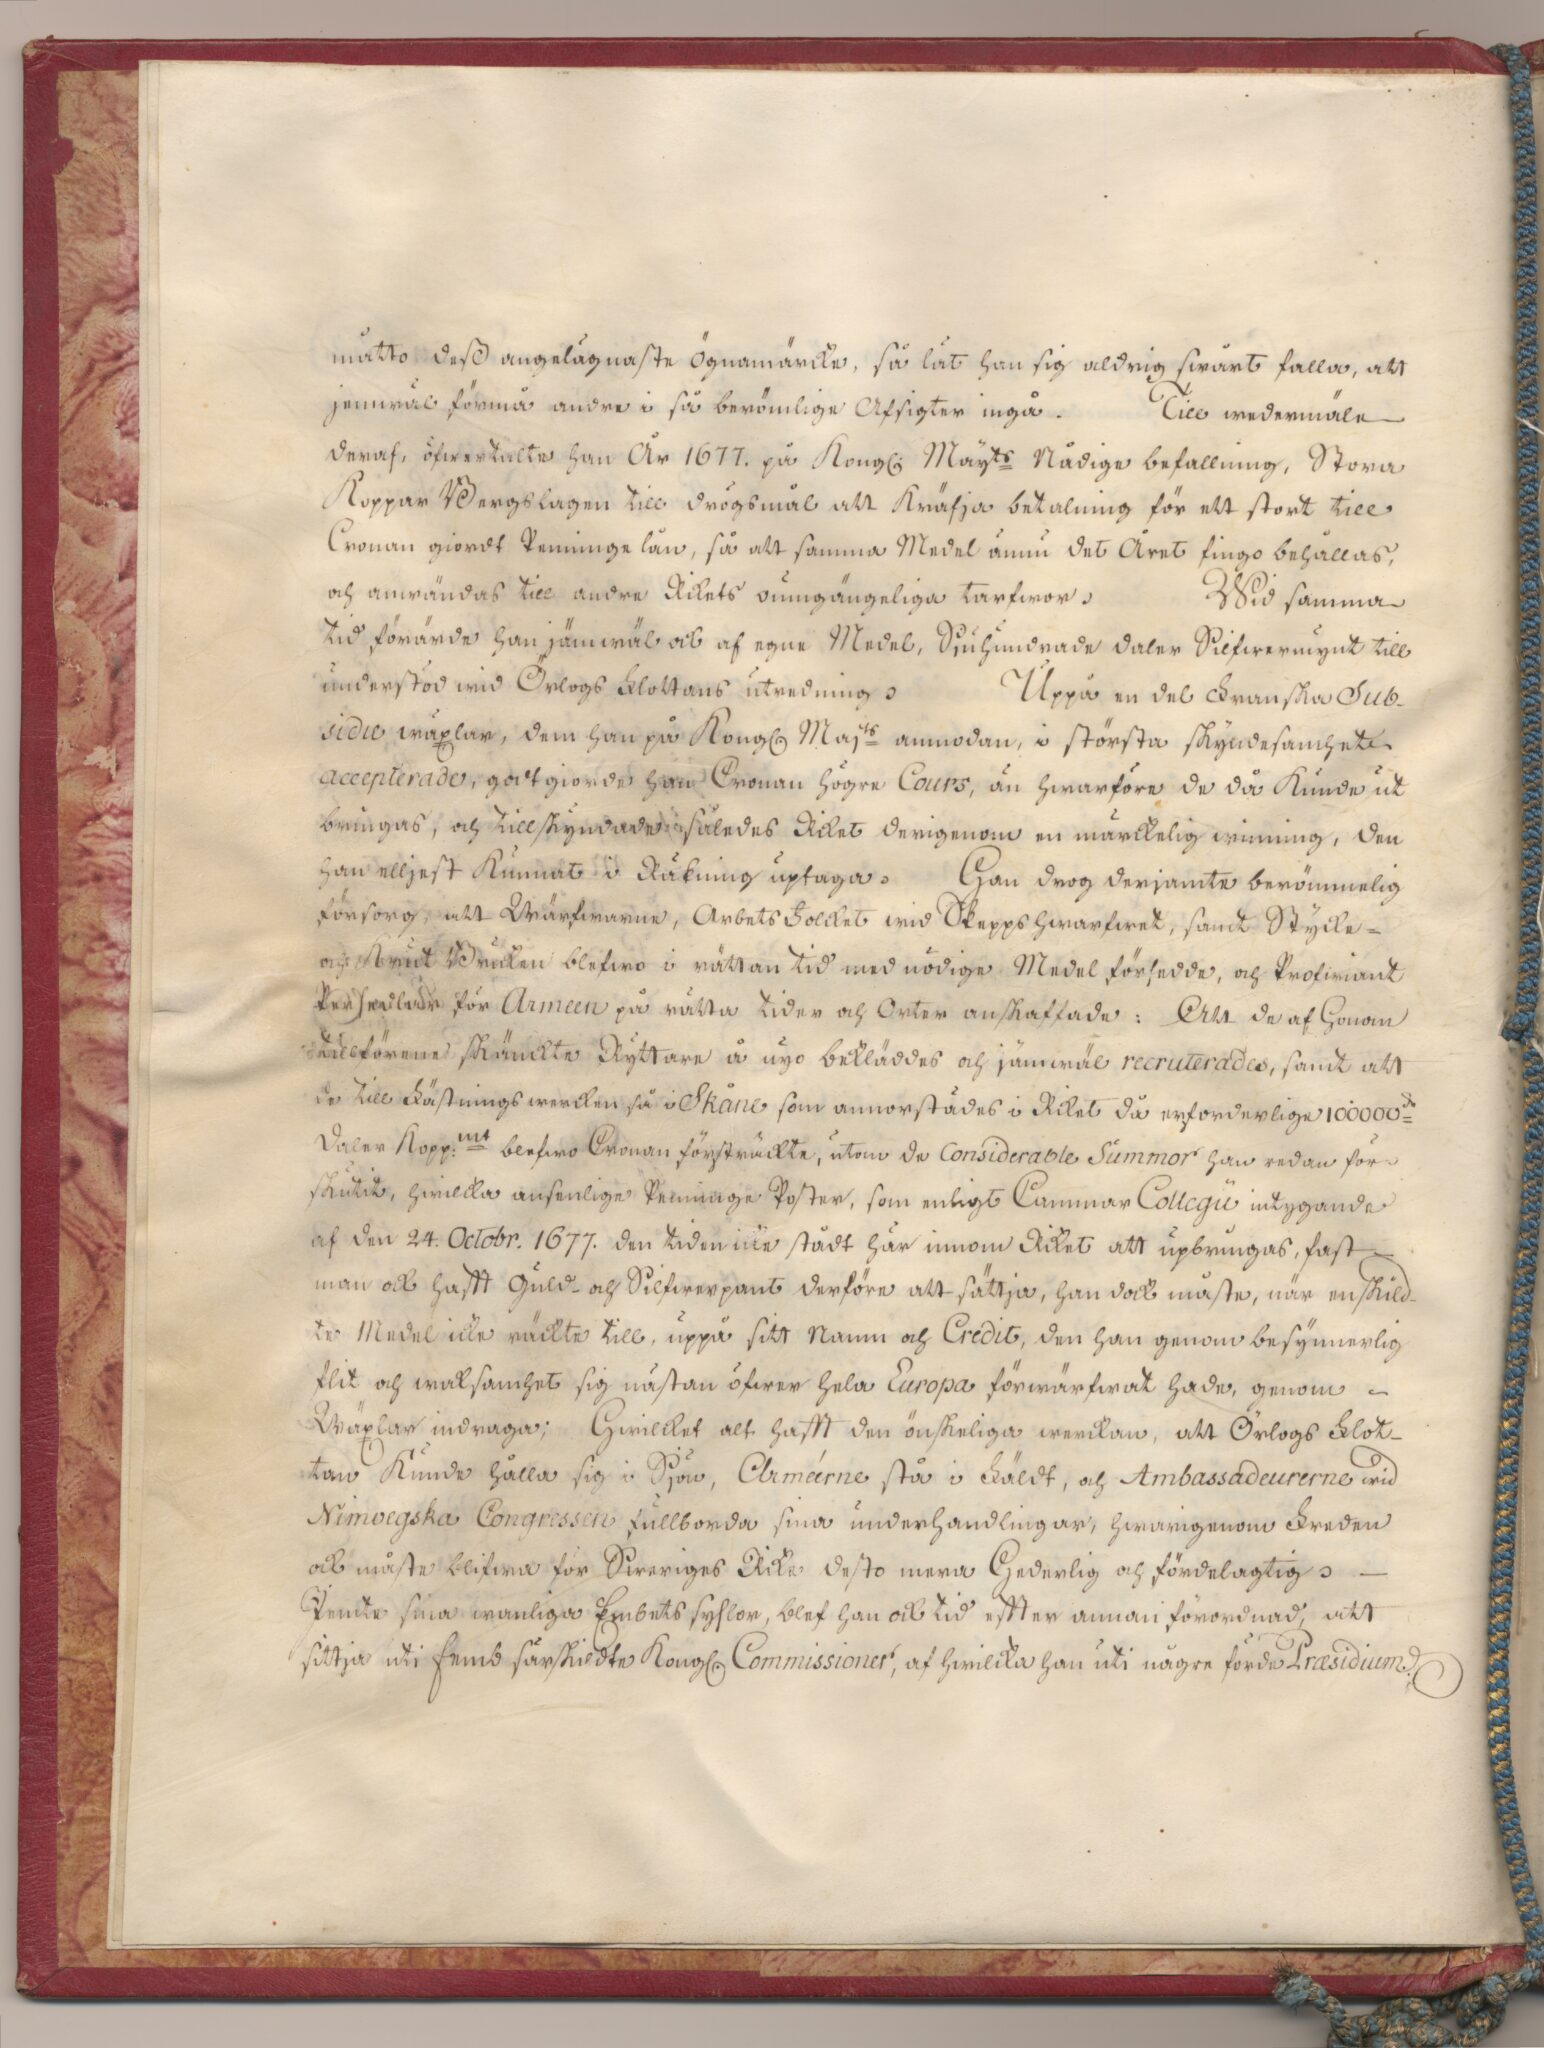 måtto dess angelägnaste Ögnamärcke, så lät han sig aldrig swårt falla, att
jemwäl förmå andre i så berömlige Afsigter ingå. Till wedermäle
deraf, öfwertalte han År 1677. på Kongl. Mayts Nådige befallning, Stora
Koppar Bergslagen till drögsmål att Kräfja betalning för ett stort till
Cronan giordt Penninge lån, så att samma Medel ännu det Året fingo behållas,
och användas till andre Rikets oumgängeliga tarfwor. Wid samma
tid förärde han jämwäl ock af egne Medel, Sjuhundrade daler Silfwermynt till
understöd wid Örlogs Flottans utredning. Uppå en del Franska Sub-
sidie wäxlar, dem han på Kongl. Majts anmodan, i största skyndesamhet
accepterade, godtgiorde han Cronan högre Cours, än hwarföre de då Kunde ut
bringas, och tillskyndade således Riket derigenom en märckelig winning, den
han elljest Kunnat i Räkning uptaga. Han drog derjämte berömmelig
försorg, att Wärfwarne, Arbets Folcket wid Skepps hwarfwet, samt Stycke-
och Krut Bruken blefwo i rättan tid med nödige Medel försedde, och Profwiant
Persedlar för Armeen på rätta tider och Orter anskaffade: Att de af Honom
tillförene skänckte Ryttare å nyo bekläddes och jämwäl recruterades, samt att
de till Fästnings wercken så i Skåne som annorstädes i Riket då erforderlige 100000de
Daler Kopp:mt blefwo Cronan försträckte, utom de Considerable Summor han redan för-
skutit, hwilcka ansenlige Penninge Poster, som enligt Cammar Collegii intygande
af den 24. Octobr. 1677. den tiden icke stådt här innom Riket att upbringas, fast
man ock hafft Guld- och Silfwerpant derföre att sättja, han dock måste, när enskild-
te Medel icke räckte till, uppå sitt Namn och Credit, den han genom besynnerlig
flit och waksamhet sig nästan öfwer hela Europa förwärfwat hade, genom
Wäxlar indraga; Hwilcket alt hafft den önskeliga werckan, att Örlogs Flot-
tan Kunde hålla sig i Sjön, Arméerne stå i Fäldt, och Ambassadeurerne wid
Nimvegska Congressen fullborda sina underhandlingar, hwarigenom Freden
ock måste blifwa för Sweriges Rike desto mera Hederlig och fördelagtig.
Jemte sina wanliga Embets sysslor, blef han ock tid efter annan förordnad, att
sittja uti Femb särskildte Kongl. Commissioner, af hwilcka han uti någre förde Præsidium.